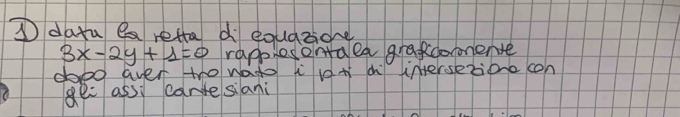 1) data la retta di equazione
3x-2y+1=0 rappresentala graficamente
dopo aver trovato i pti di intersezione con
gli assi cartesiani